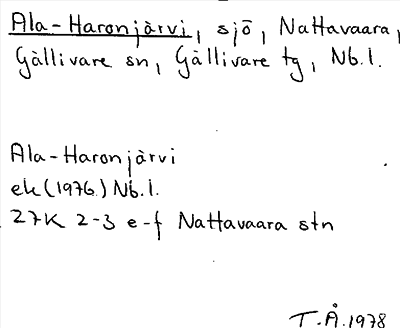 Ala-Haronjärvi, sjö, Nattavaara,
Gällivare sn, Gällivare tg, Nb.l.
Ala-Haronjärvi
ek (1976) Nb.l.
27K 2-3 e-f Nattavaara stn
T.Å. 1978